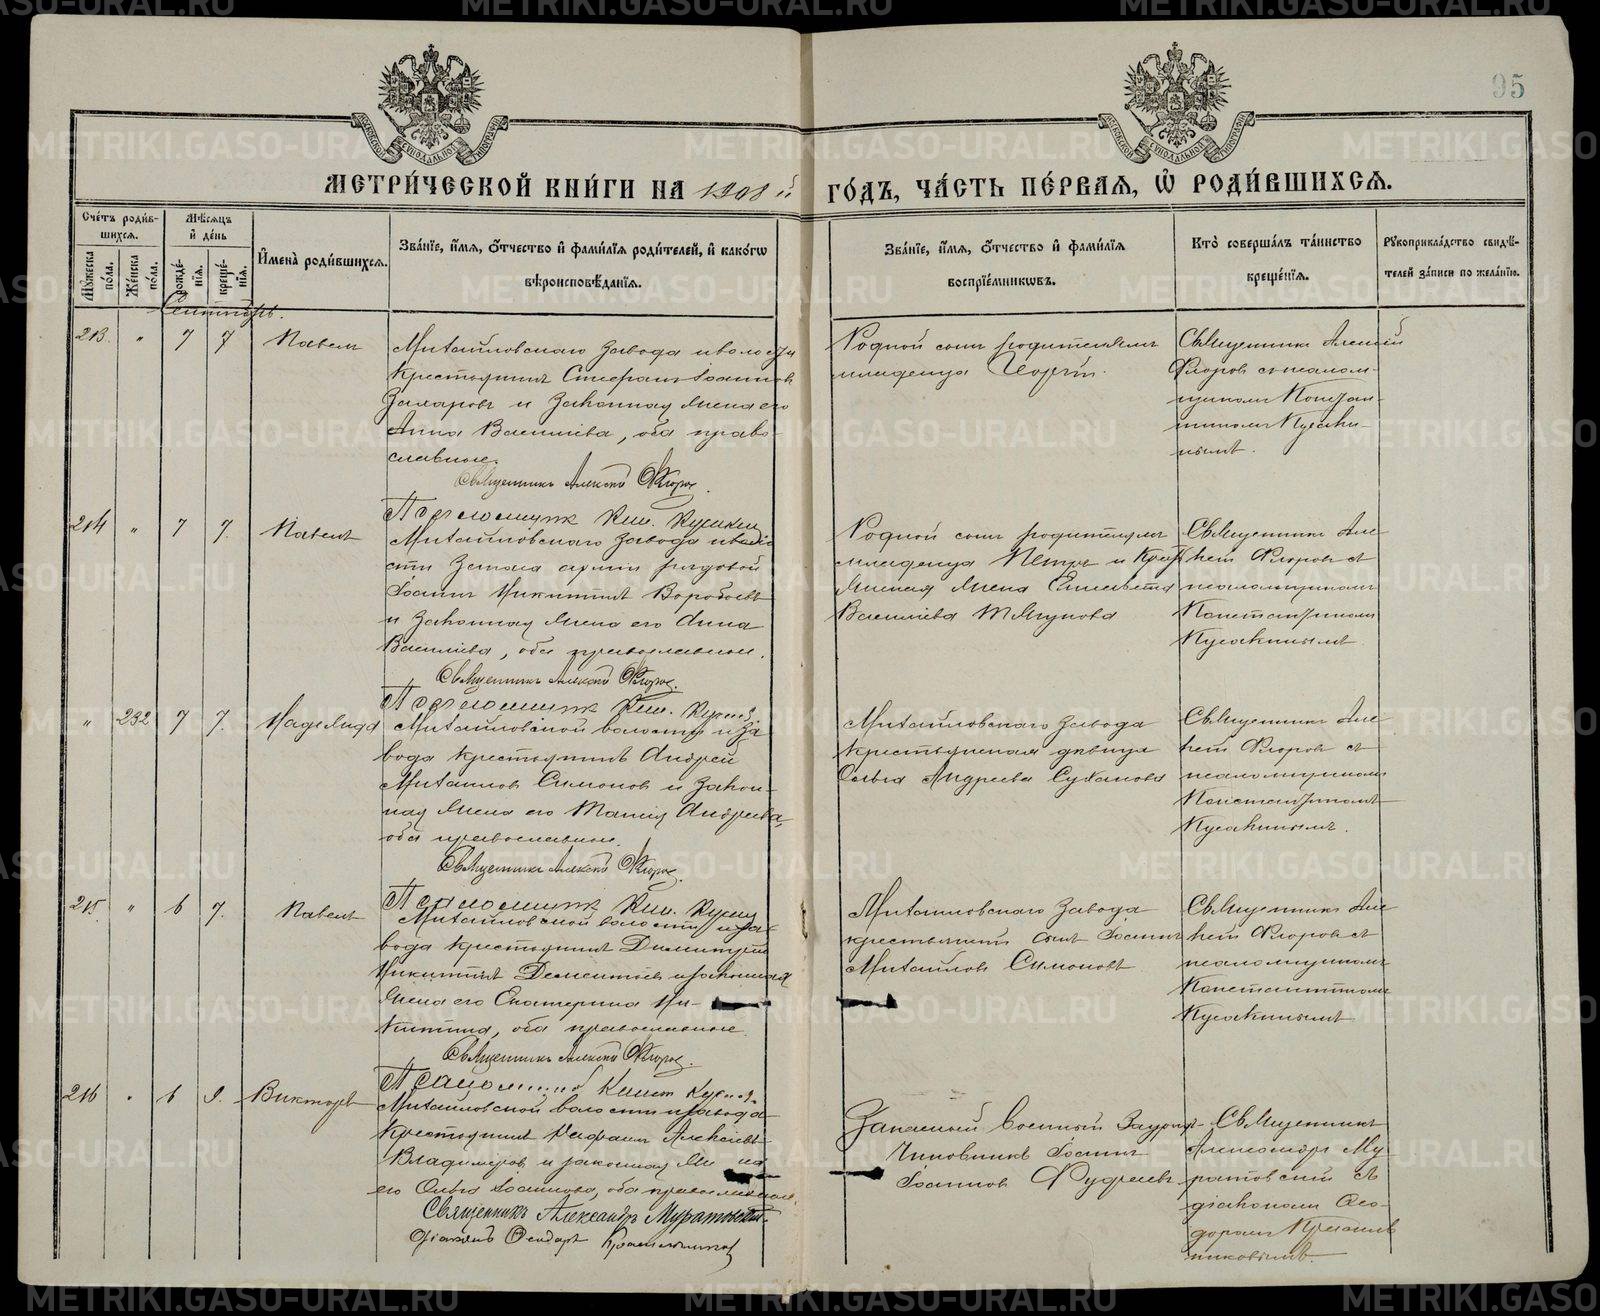 95
МЕТРИ́ЧЕСКОЙ КНИ́ГИ НА 1908 й ГО́ДЪ, ЧА́СТЬ ПЕ́РВАЯ, Ѡ҆ РОДИ́ВШИХСЯ.
Сче́тъ роди́вшихся.
Мужеска пола.
Женска пола.
Мѣсяцъ и день
рожде́нїя.
креще́нїя.
И҆мена̀ роди́вшихся.
Зва́нїе, и҆́мя, о҆́тчество и҆ фами́лїя роди́телей, и҆ како́гѡ
вѣроисповѣ́данїя.
Зва́нїе, и҆́мя, о҆́тчество и҆ фами́лїя
воспрїе́мникѡвъ.
Кто̀ соверша́лъ та́инство
креще́нїя.
Рꙋкоприкла́дство свидѣ́-
телей за́писи по жела́нїю.
Сентябрь.
213. " 7 7 Павелъ
Михайловскаго завода и волости
крестьянинъ Стефанъ Іоаннов
Захаровъ и законная жена его
Анна Васильева, оба право-
славные.
Священникъ Алексій Флоров.
Родной сынъ родителямъ
младенца Сергій.
Священникъ Алексій
Флоровъ съ псалом-
щикомъ Констан-
тиномъ Кусакиⸯ-
нымъ.
214 " 7 7. Павелъ
Псаломщикъ Кон. Кусакин
Михайловскаго завода и воло
сти запаса арміи рядовой
Іоаннъ Никитинъ Воробьевъ
и законная жена его Анна
Васильева, оба православные.
Священникъ Алексій Флоров.
Родной сынъ родителямъ
младенца Петръ и крест
жена Елисавета
Васильева
Священникъ Але-
ксій Флоровъ съ
псаломщикомъ
Константиномъ
Кусакинымъ
" 232 7 7. Надежда
Псаломщикъ Кон. Кусакин
Михайловской волости и за
вода крестьянинъ Андрей
Михайловъ Симоновъ и закон-
ная жена его Андреева,
оба православные.
Священникъ Алексій Флоров.
Михайловскаго завода
крестьянская дѣвица
Ольга Андреева Суханова
Священникъ Але-
ксій Флоровъ съ
псаломщикомъ
Константиномъ
Кусакинымъ.
215. " 6 7. Павелъ
Псаломщикъ Кон. Кусакин
Михайловской волости и за-
вода крестьянинъ Димитрій
Никитинъ Дементьевъ и законная
жена его Екатерина Ни-
китина, оба православные
Священникъ Алексій Флоров.
Михайловскаго завода
крестьянскій сынъ Іоаннъ
Михайловъ Симоновъ
Священникъ Але-
ксій Флоровъ съ
псаломщикомъ
Константиномъ
Кусакинымъ
216 " 6 9. Викторъ
Михайловской волости и завода
крестьянинъ Алексѣевъ
Владимеровъ и законная же на
его Ольга Іоаннова, оба православные.
Священникъ Александръ Муратовскій.
Діаконъ Ѳеодоръ Красильников
Запасный военный Зауряд-
чиновникъ Іоаннъ
Іоанновъ
Священникъ
Александръ Му-
ратовскій съ
діакономъ Ѳео-
доромъ Красиль
никовымъ.